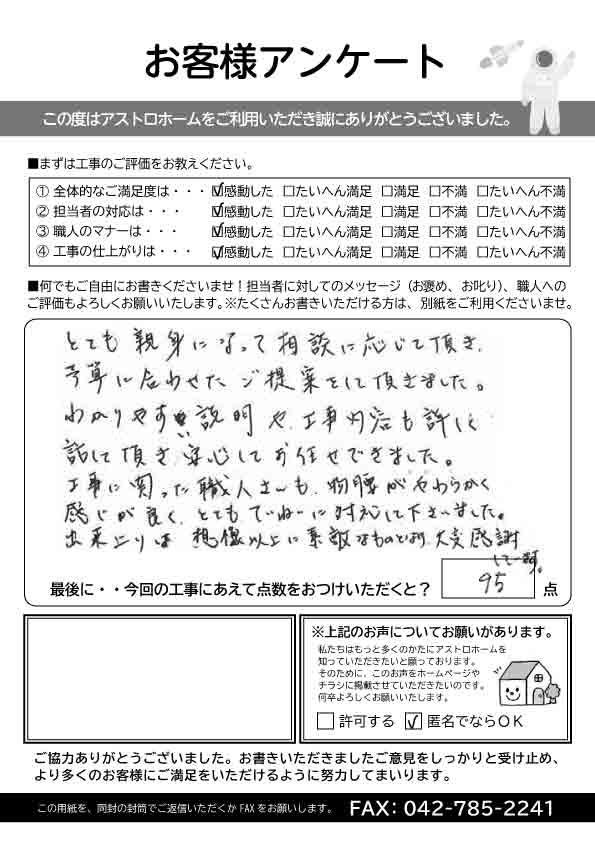 お客様アンケート
この度はアストロホームをご利用いただき誠にありがとうございました。
■まずは工事のご評価をお教えください。
① 全体的なご満足度は・・・ ☑感動した □たいへん満足 □満足 □不満 □たいへん不満
② 担当者の対応は・・・ ☑感動した □たいへん満足 □満足 □不満 □たいへん不満
③ 職人のマナーは・・・ ☑感動した □たいへん満足 □満足 □不満 □たいへん不満
④ 工事の仕上がりは・・・ ☑感動した □たいへん満足 □満足 □不満 □たいへん不満
■何でもご自由にお書きくださいませ！担当者に対してのメッセージ（お褒め、お叱り）、職人への
ご評価もよろしくお願いいたします。※たくさんお書きいただける方は、別紙をご利用くださいませ。
とても親身になって相談に応じて頂き、
予算に合わせたご提案をして頂きました。
わかりやすい説明や、工事内容も詳しく
話して頂き安心してお任せできました。
工事に関った職人さんも、物腰がやわらかく
感じが良く、とてもていねいに対応して下さいました。
出来上りは想像以上に素敵なものとなり、大変感謝
して
最後に・・今回の工事にあえて点数をおつけいただくと？ 95 点
※上記のお声についてお願いがあります。
私たちはもっと多くのかたにアストロホームを
知っていただきたいと願っております。
そのために、このお声をホームページや
チラシに掲載させていただきたいのです。
何卒よろしくお願いいたします。
□ 許可する ☑ 匿名でならＯＫ
ご協力ありがとうございました。お書きいただきましたご意見をしっかりと受け止め、
より多くのお客様にご満足をいただけるように努力してまいります。
この用紙を、同封の封筒でご返信いただくか FAX をお願いします。 FAX: 042-785-2241